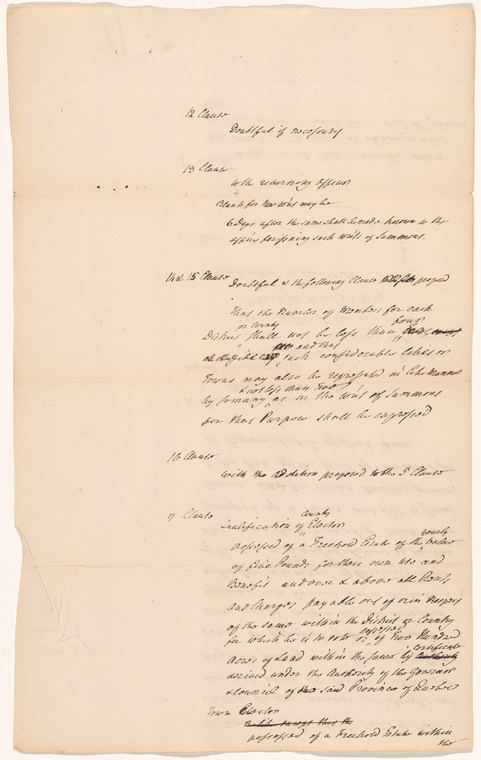 12 Clause
Doubtful if necessary
13 Clause
to the returning Officer
Blank for new writs may be
6 Days after the same shall be made known to the
Office for issuing such writs of Summons.
14 & 15 Clause
Doubtful & the following Clause proposed
That the Number of Members for each
or County four
District shall not be less than
and that
such considerable Cities or
Towns may also be represented in like Manner
& not less than two
by so many as in the writ of Summons
for that Purpose shall be expressed
16 Clause
with the addition proposed to the 5 Clause
17 Clause
County
Qualification of Elector
yearly
possessed of a Freehold Estate of the value
of Five Pounds for their own use and
Benefit and over & above all Rents
and Charges payable out of or in respect
of the same within the District or County
possessed
for which he is to vote or of Two Hundred
certificate
acres of Land within the same by authority
derived under the Authority of the Governor
& Council of the said Province of Quebec
Town Elector
possessed of a Freehold Estate within
the